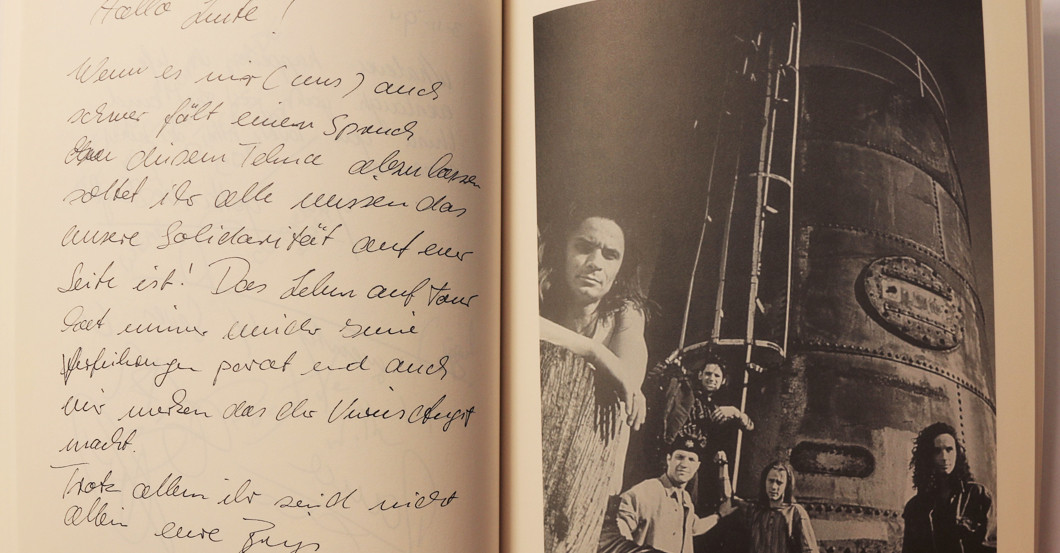 Hallo Leute!
Wenn es mir (uns) auch
schwer fält einen Spruch
über diesem Tehma abzulassen
soltet ihr alle wissen das
unsere Solidarität auf eurer
Seite ist! Das Leben auf Tour
hat immer wieder seine
Verführungen parat und auch
wir merken das der Virus Angst
macht.
Trotz allem ihr seid nicht
allein eure